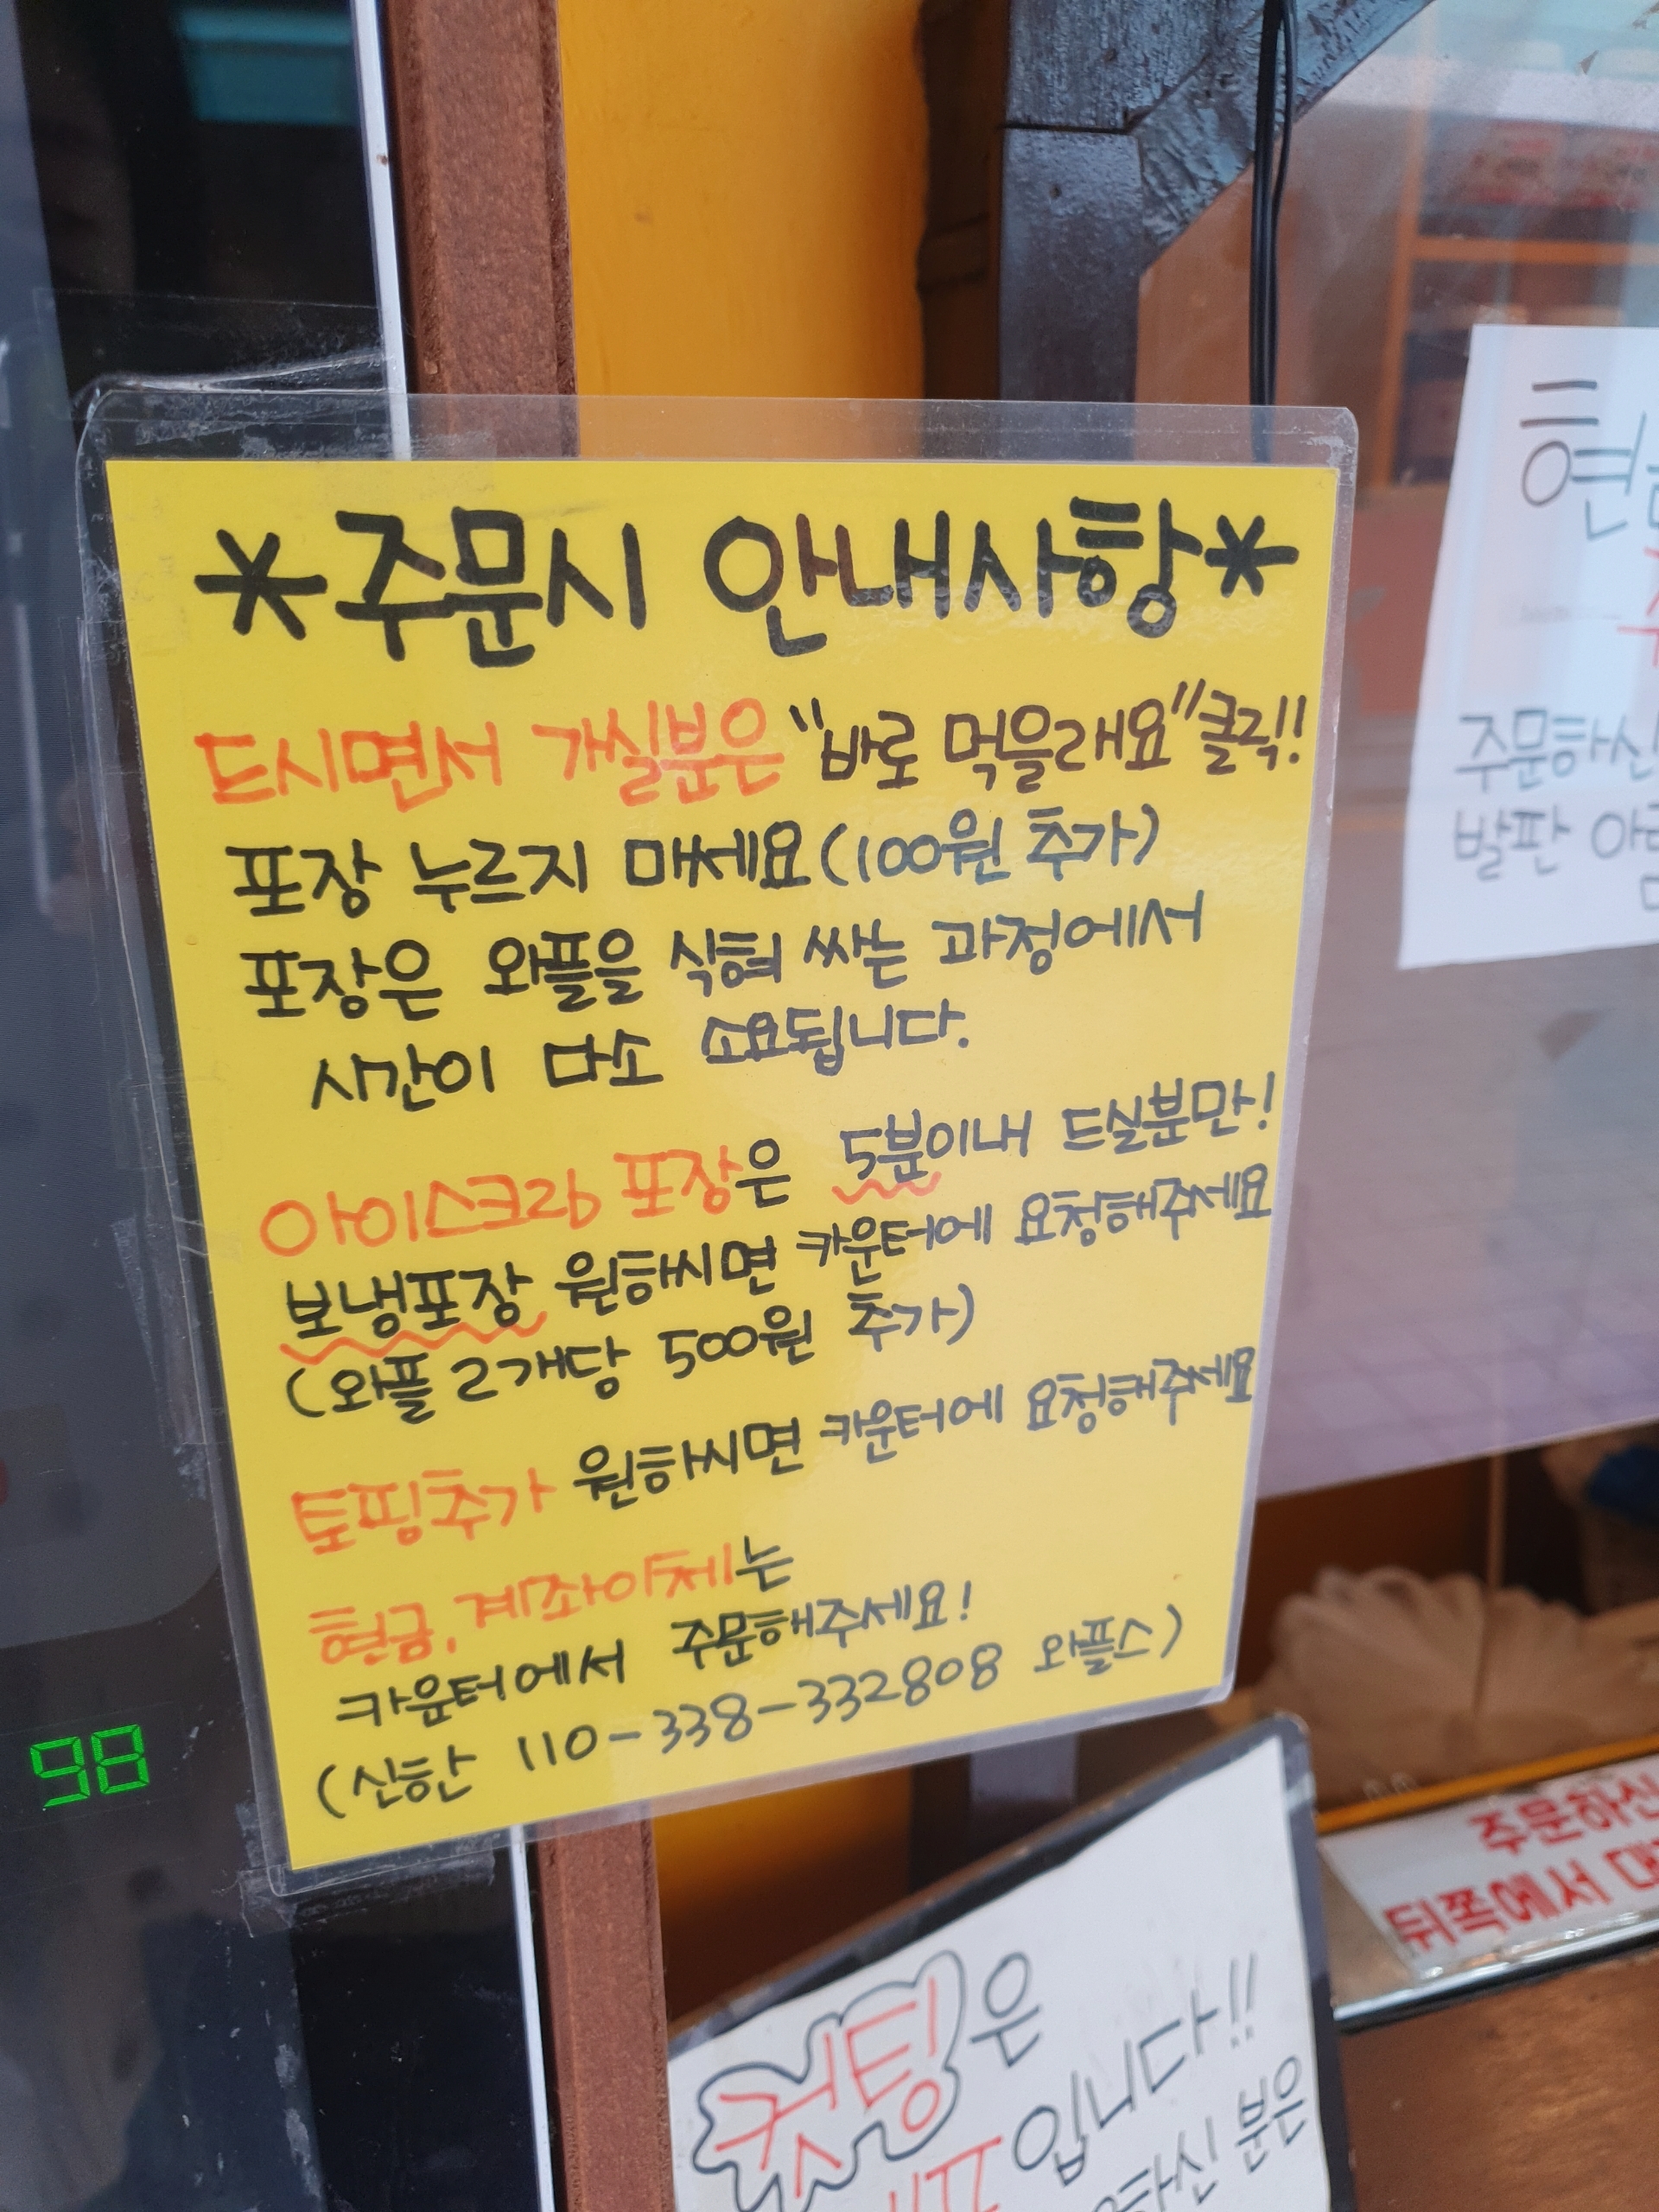 *주문시 안내사항*
드시면서 개실분은 "바로 먹을래요" 클릭!!
포장 누르지 마세요 (100원 추가)
포장은 와플을 식혀 싸는 과정에서
시간이 다소 소요됩니다.
아이스크림 포장은 5분이내 드실분만!
보냉포장 원하시면 카운터에 요청해주세요
(와플 2개당 500원 추가)
토핑추가 원하시면 카운터에 요청해주세요
현금, 계좌이체는
카운터에서 주문해주세요!
(신한 110-338-332808 와플스)
98
주문하신
발판
주문하신
뒤쪽에서
컷팅은
입니다!!
분은